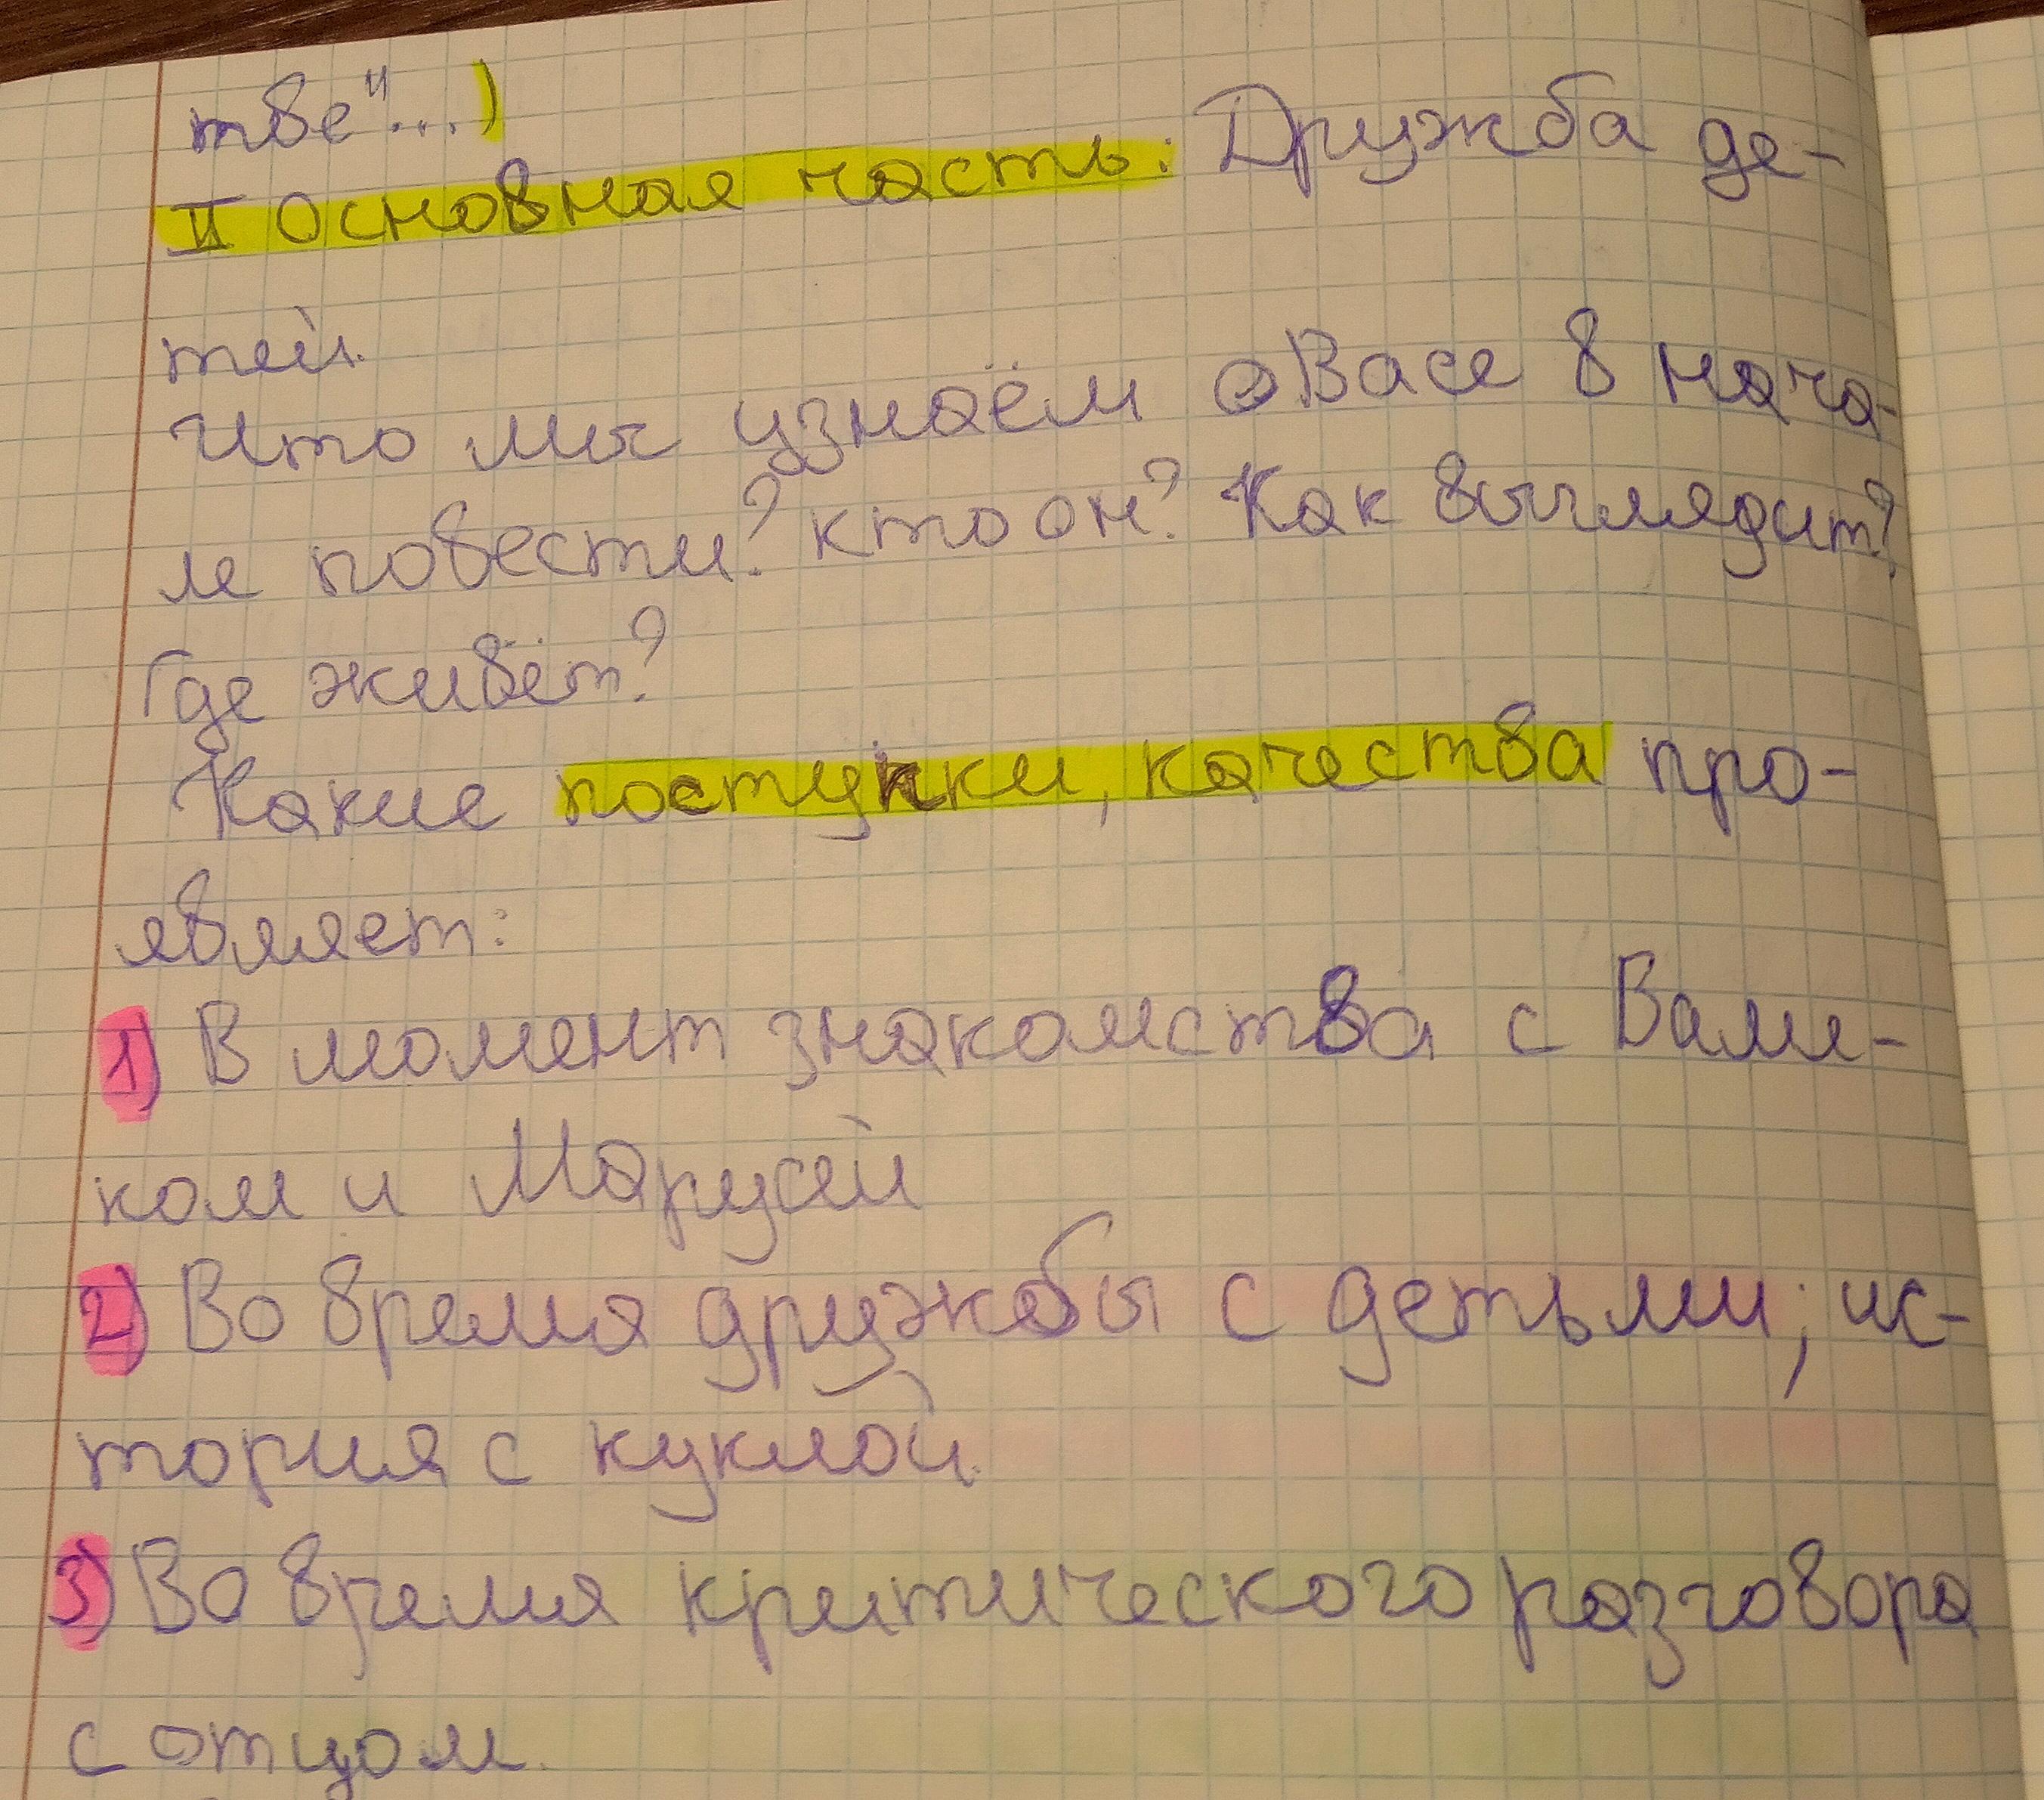 тве"...)
II Основная часть: Дружба де-
тей.
Что мы узнаём о Васе в нача-
ле повести? кто он? Как выглядит?
Где живёт?
Какие поступки, качества про-
являет:
1) В момент знакомства с Вале-
ком и Марусей
2) Во время дружбы с детьми; ис-
тория с куклой.
3) Во время критического разговора
с отцом.